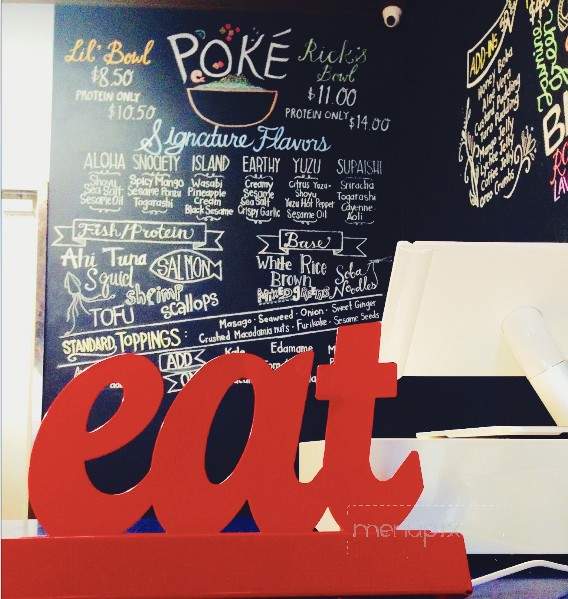 POKÉ
Lil' Bowl
$8.50
PROTEIN ONLY
$10.50
Rick's
Bowl
$11.00
PROTEIN ONLY
$14.00
Signature Flavors
ALOHA
Shoyu
Sea Salt
Sesame Oil
SNOCIETY
Spicy Mango
Sesame Ponzu
Togarashi
ISLAND
Wasabi
Pineapple
Cream
Black Sesame
EARTHY
Creamy
Sesame
Sea Salt
Crispy Garlic
YUZU
Citrus Yuzu-
Shoyu
Yuzu Hot Pepper
Sesame Oil
SUPAISHI
Sriracha
Togarashi
Cayenne
Aoli
Fish/Protein
Ahi Tuna
Squid
SALMON
shrimp
TOFU
scallops
Base
White Rice
Brown
Soba
Noodles
STANDARD TOPPINGS:
Masago · Seaweed · Onion · Sweet Ginger
Crushed Macadamia nuts · Furikake · Sesame Seeds
ADD
Kale
Edamame
ADD-INS
Honey Boba
Aloe Vera
Custard Pudding
Taro Pudding
Mango Jelly
Lychee Jelly
Coffee Jelly
Oreo Crumbs
eat
menupix